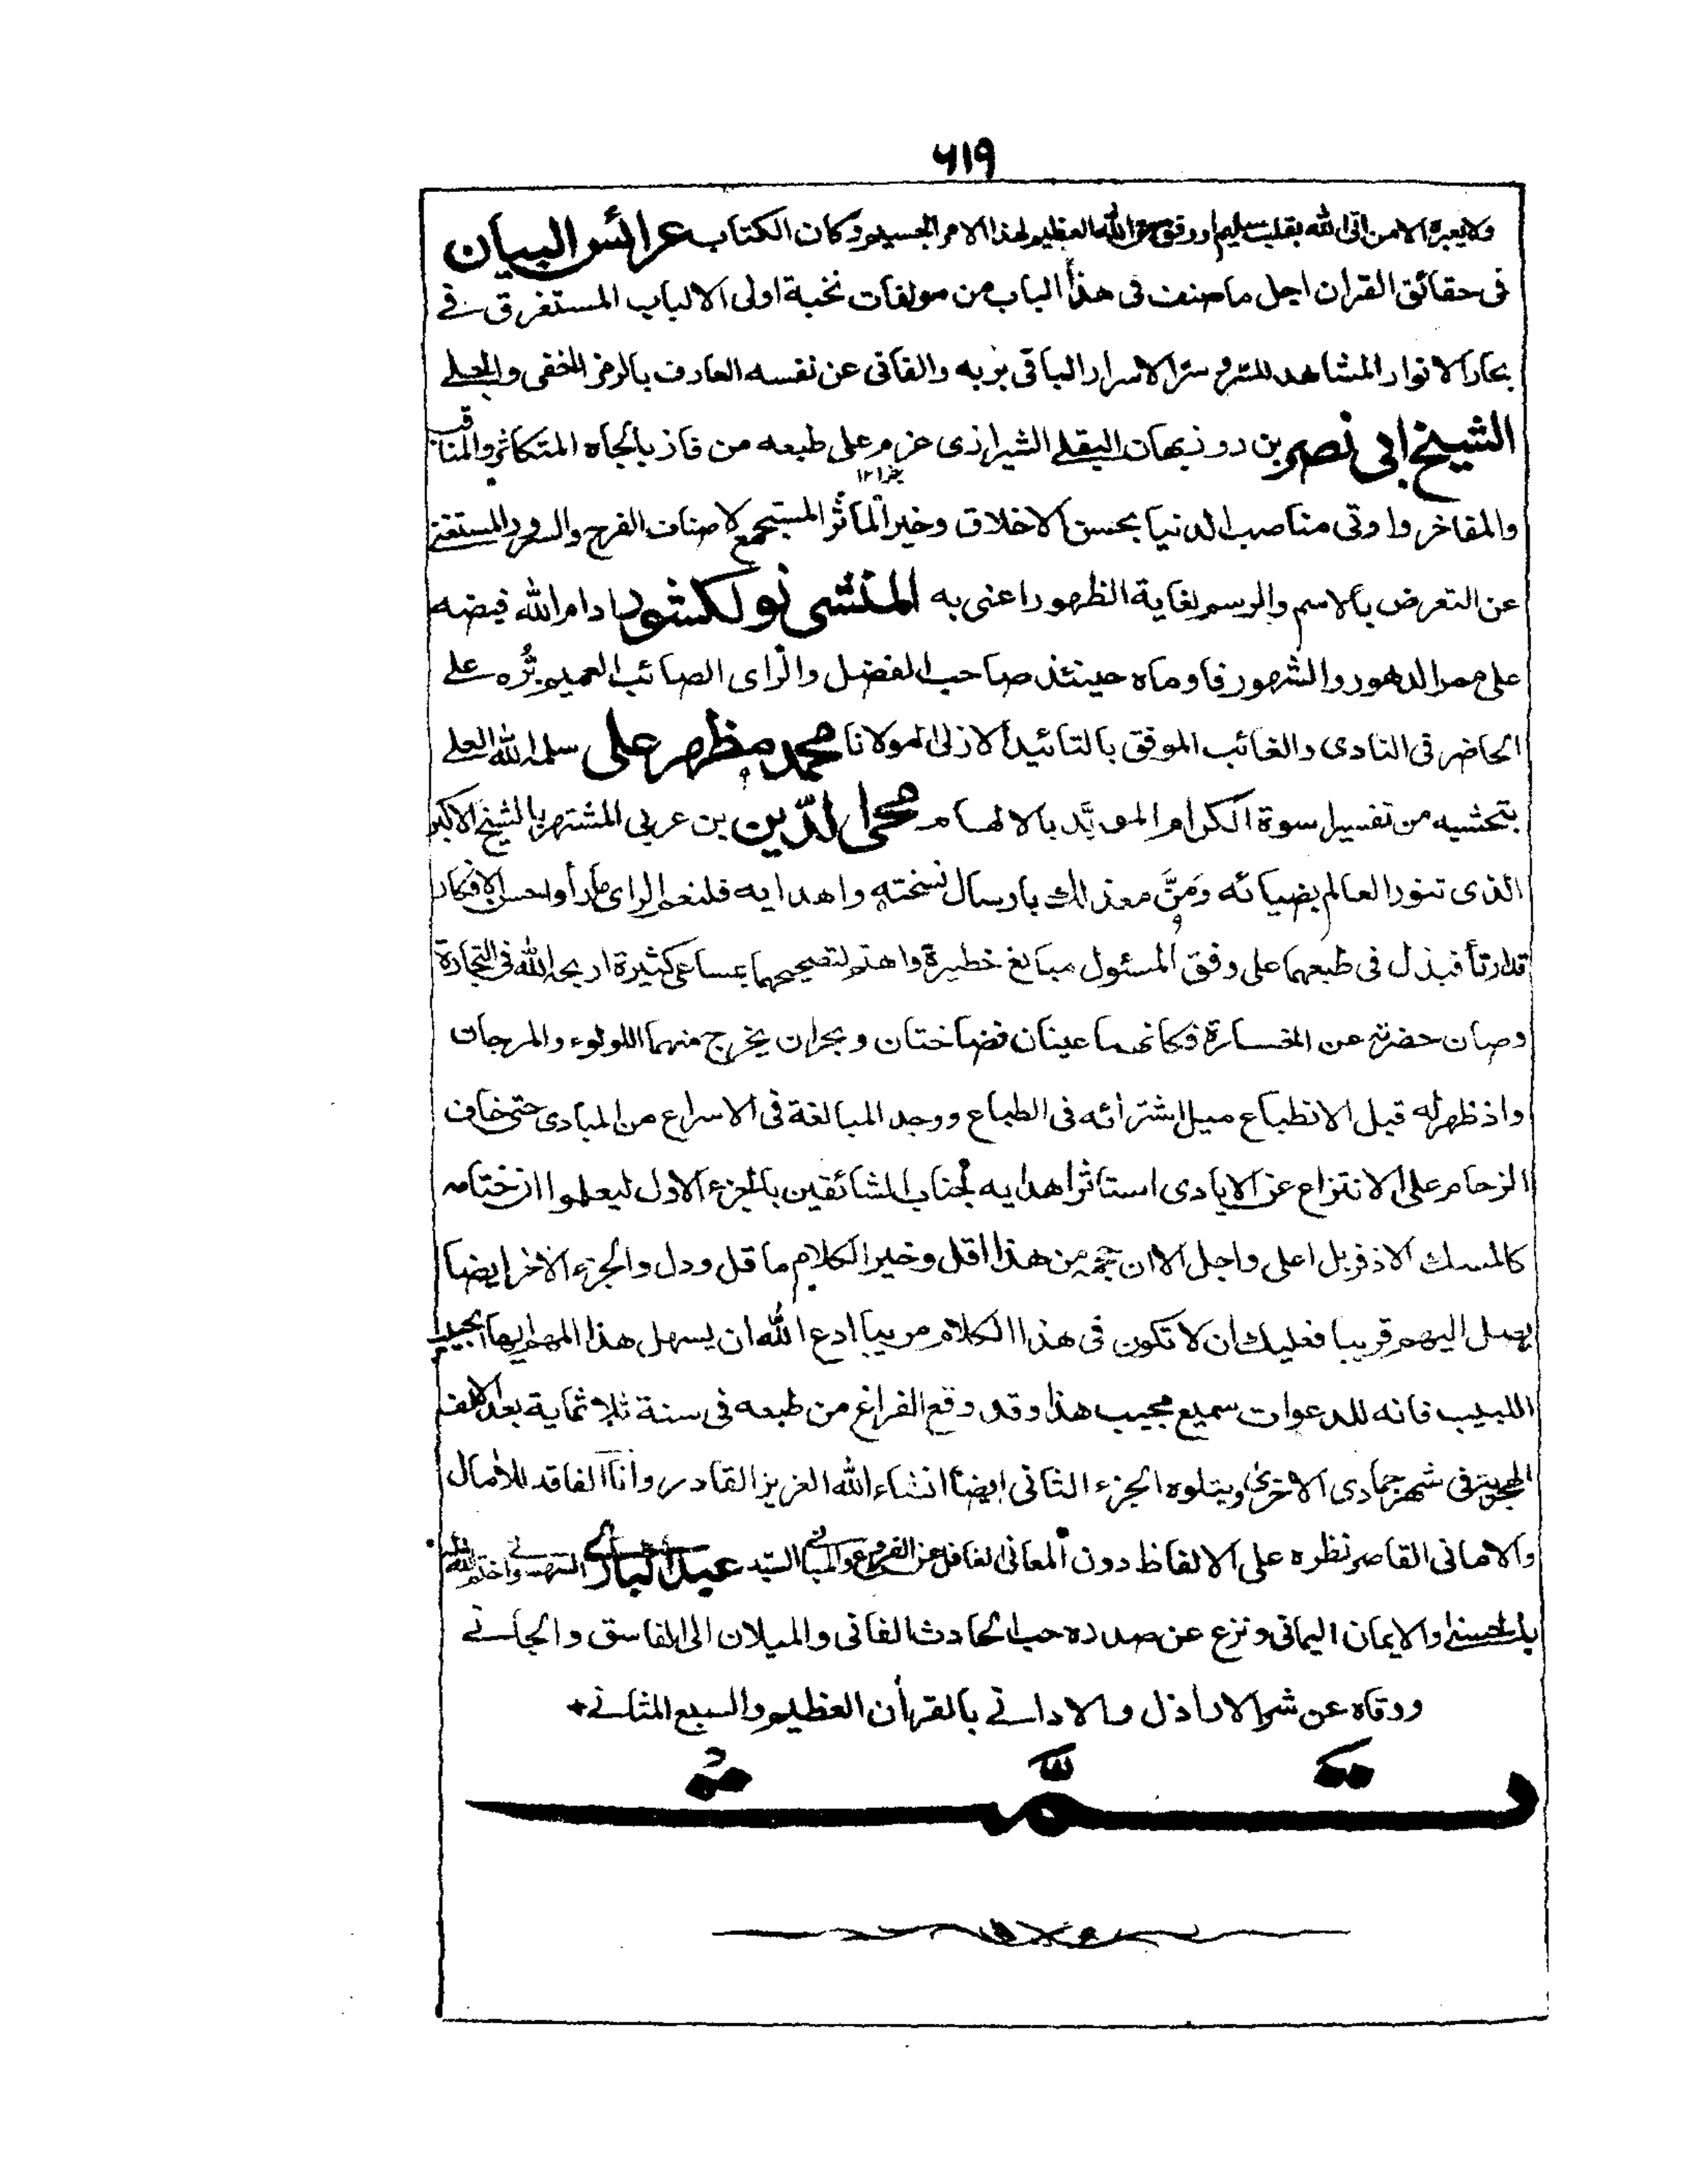 ۶۱۹
ولا يعبره الا من اتى الله بقلب سليم او وفق من الله العظيم لهذا الامر الجسيم وكان الكتاب عرائس البيان
فى حقائق القران اجل ما صنف فى هذا الباب من مولفات نخبة اولى الالباب المستغرق فے
بحار الانوار المشاهد للسر و سر الاسرار الباقى بربه والفانى عن نفسه العارف بالرمز الخفى والجلے
الشيخ ابى نصر بن روزبهان البقلے الشيرازى عزم على طبعه من فاز بالجاه المتكاثر والمناقب
والمفاخر واوتى مناصب الدنيا بحسن الاخلاق وخير المآثر المستجمع لاصناف الفرح والسرور المستغنے
عن التعرض بالاسم والرسم لغاية الظهور اعنى به المنشى نولكشور ادام الله فيضه
على ممر الدهور والشهور فاومأه حينئذ صاحب الفضل والراى الصائب العميم برّه على
الحاضر فى النادى والغائب الموفق بالتائيد الازلى المولانا محمد مظهر على سلمه الله العلے
بتحشيه من تفسير اسوة الكرام المويّد بالالهام محى الدّين بن عربى المشتهر بالشيخ الاكبر
الذى تنور العالم بضيائه ومَنَّ مع ذلك بارسال نسخته واهدايه فلنعم الراى ما رأوا حسن الافكار
قدارتأ فبذل فى طبعهما على وفق المسئول مبالغ خطيرة واهتم لتصحيحهما بمساعى كثيرة اربحه الله فى التجارة
وصان حضرته عن الخسارة فكانهما عينان نضاختان وبحران يخرج منهما اللولوء والمرجان
واذ ظهر له قبل الانطباع ميل اشترائه فى الطباع ووجد المبالغة فى الاسراع من المبادى حتى خاف
الزحام على الانتزاع عن الايادى استاثر اهدايه لجناب المشائقين بالجزء الاول ليعلموا ان ختامه
كالمسك الاذفر بل اعلى واجل الا ان حجمه من هذا اقل وخير الكلام ما قل ودل والجزء الاخر ايضا
يصل اليهم قريبا فعليك ان لا تكون فى هذا الكلام مريبا ادع الله ان يسهل هذا المهم ايها
اللبيب فانه للدعوات سميع مجيب هذا وقد وقع الفراغ من طبعه فى سنة ثلاثماية بعد الالف
الهجرية فى شهر جمادى الاخرى ويتلوه الجزء الثانى ايضا انشاء الله العزيز القادر وانا الفاقد للأمال
والامانى القاصر نظره على الالفاظ دون المعانى الغافل عن الفروع والمبانى السيد عبد البارى
والايمان اليمانى ونزع عن صدره حب الحادث الفانى والميلان الى الفاسق والجانے
ووقاه عن شر الاراذل والادانے بالقرأن العظيم والسبع المثانے
تمّت